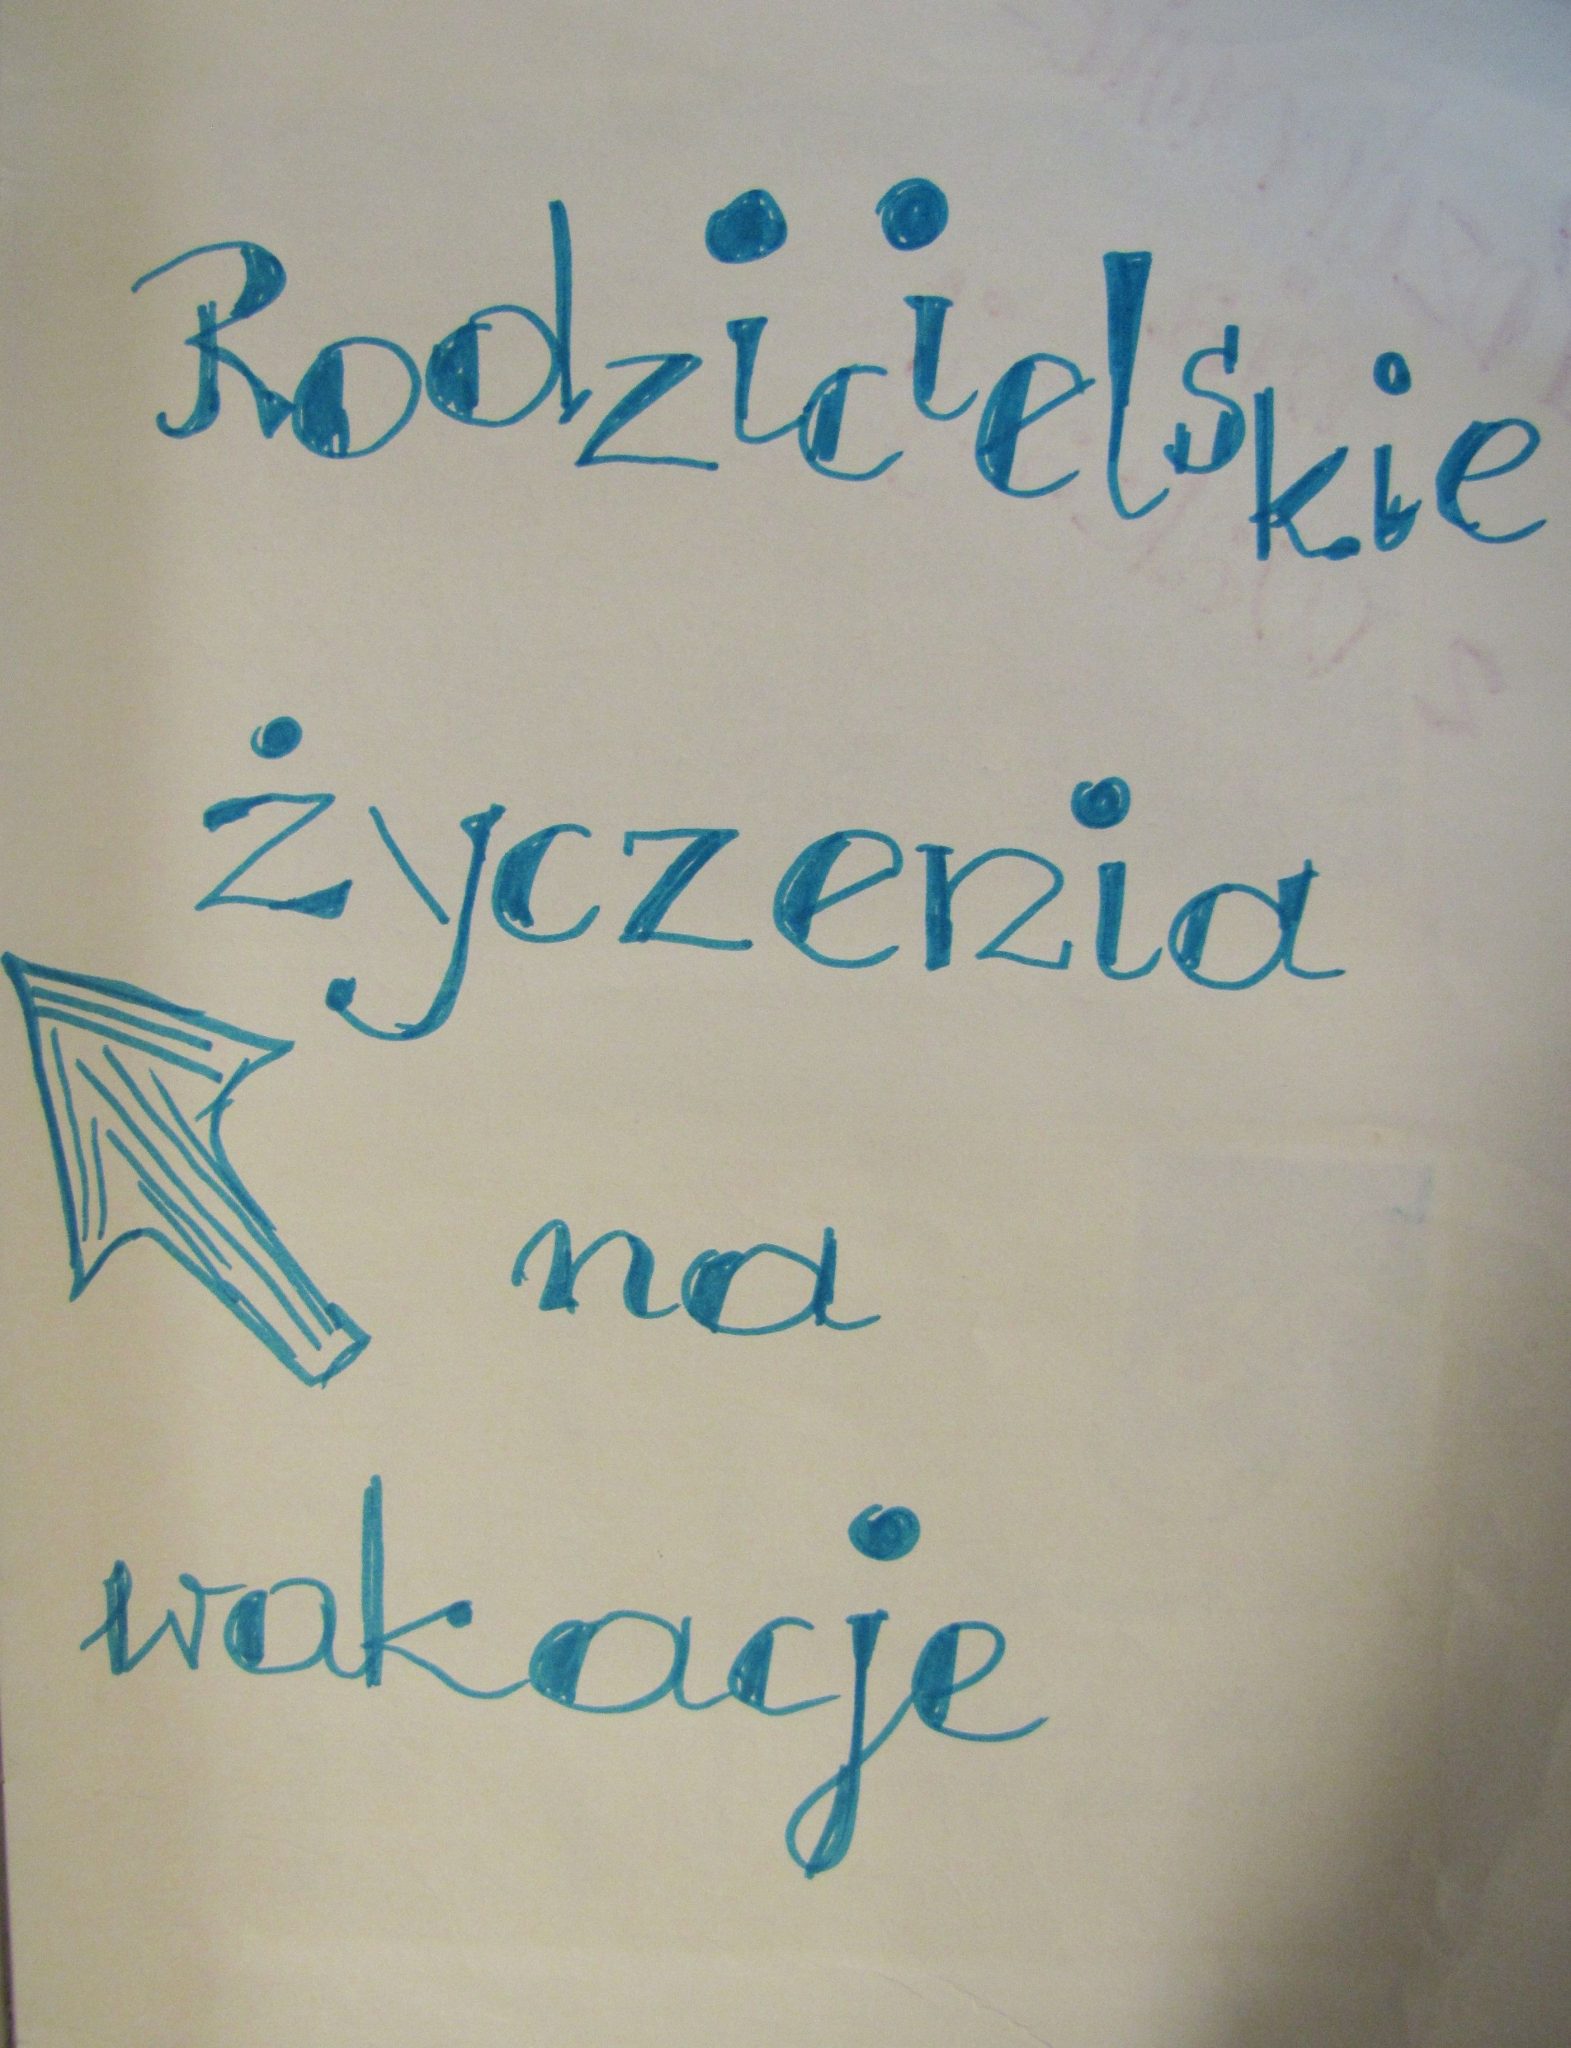 Rodzicielskie
życzenia
na
wakacje